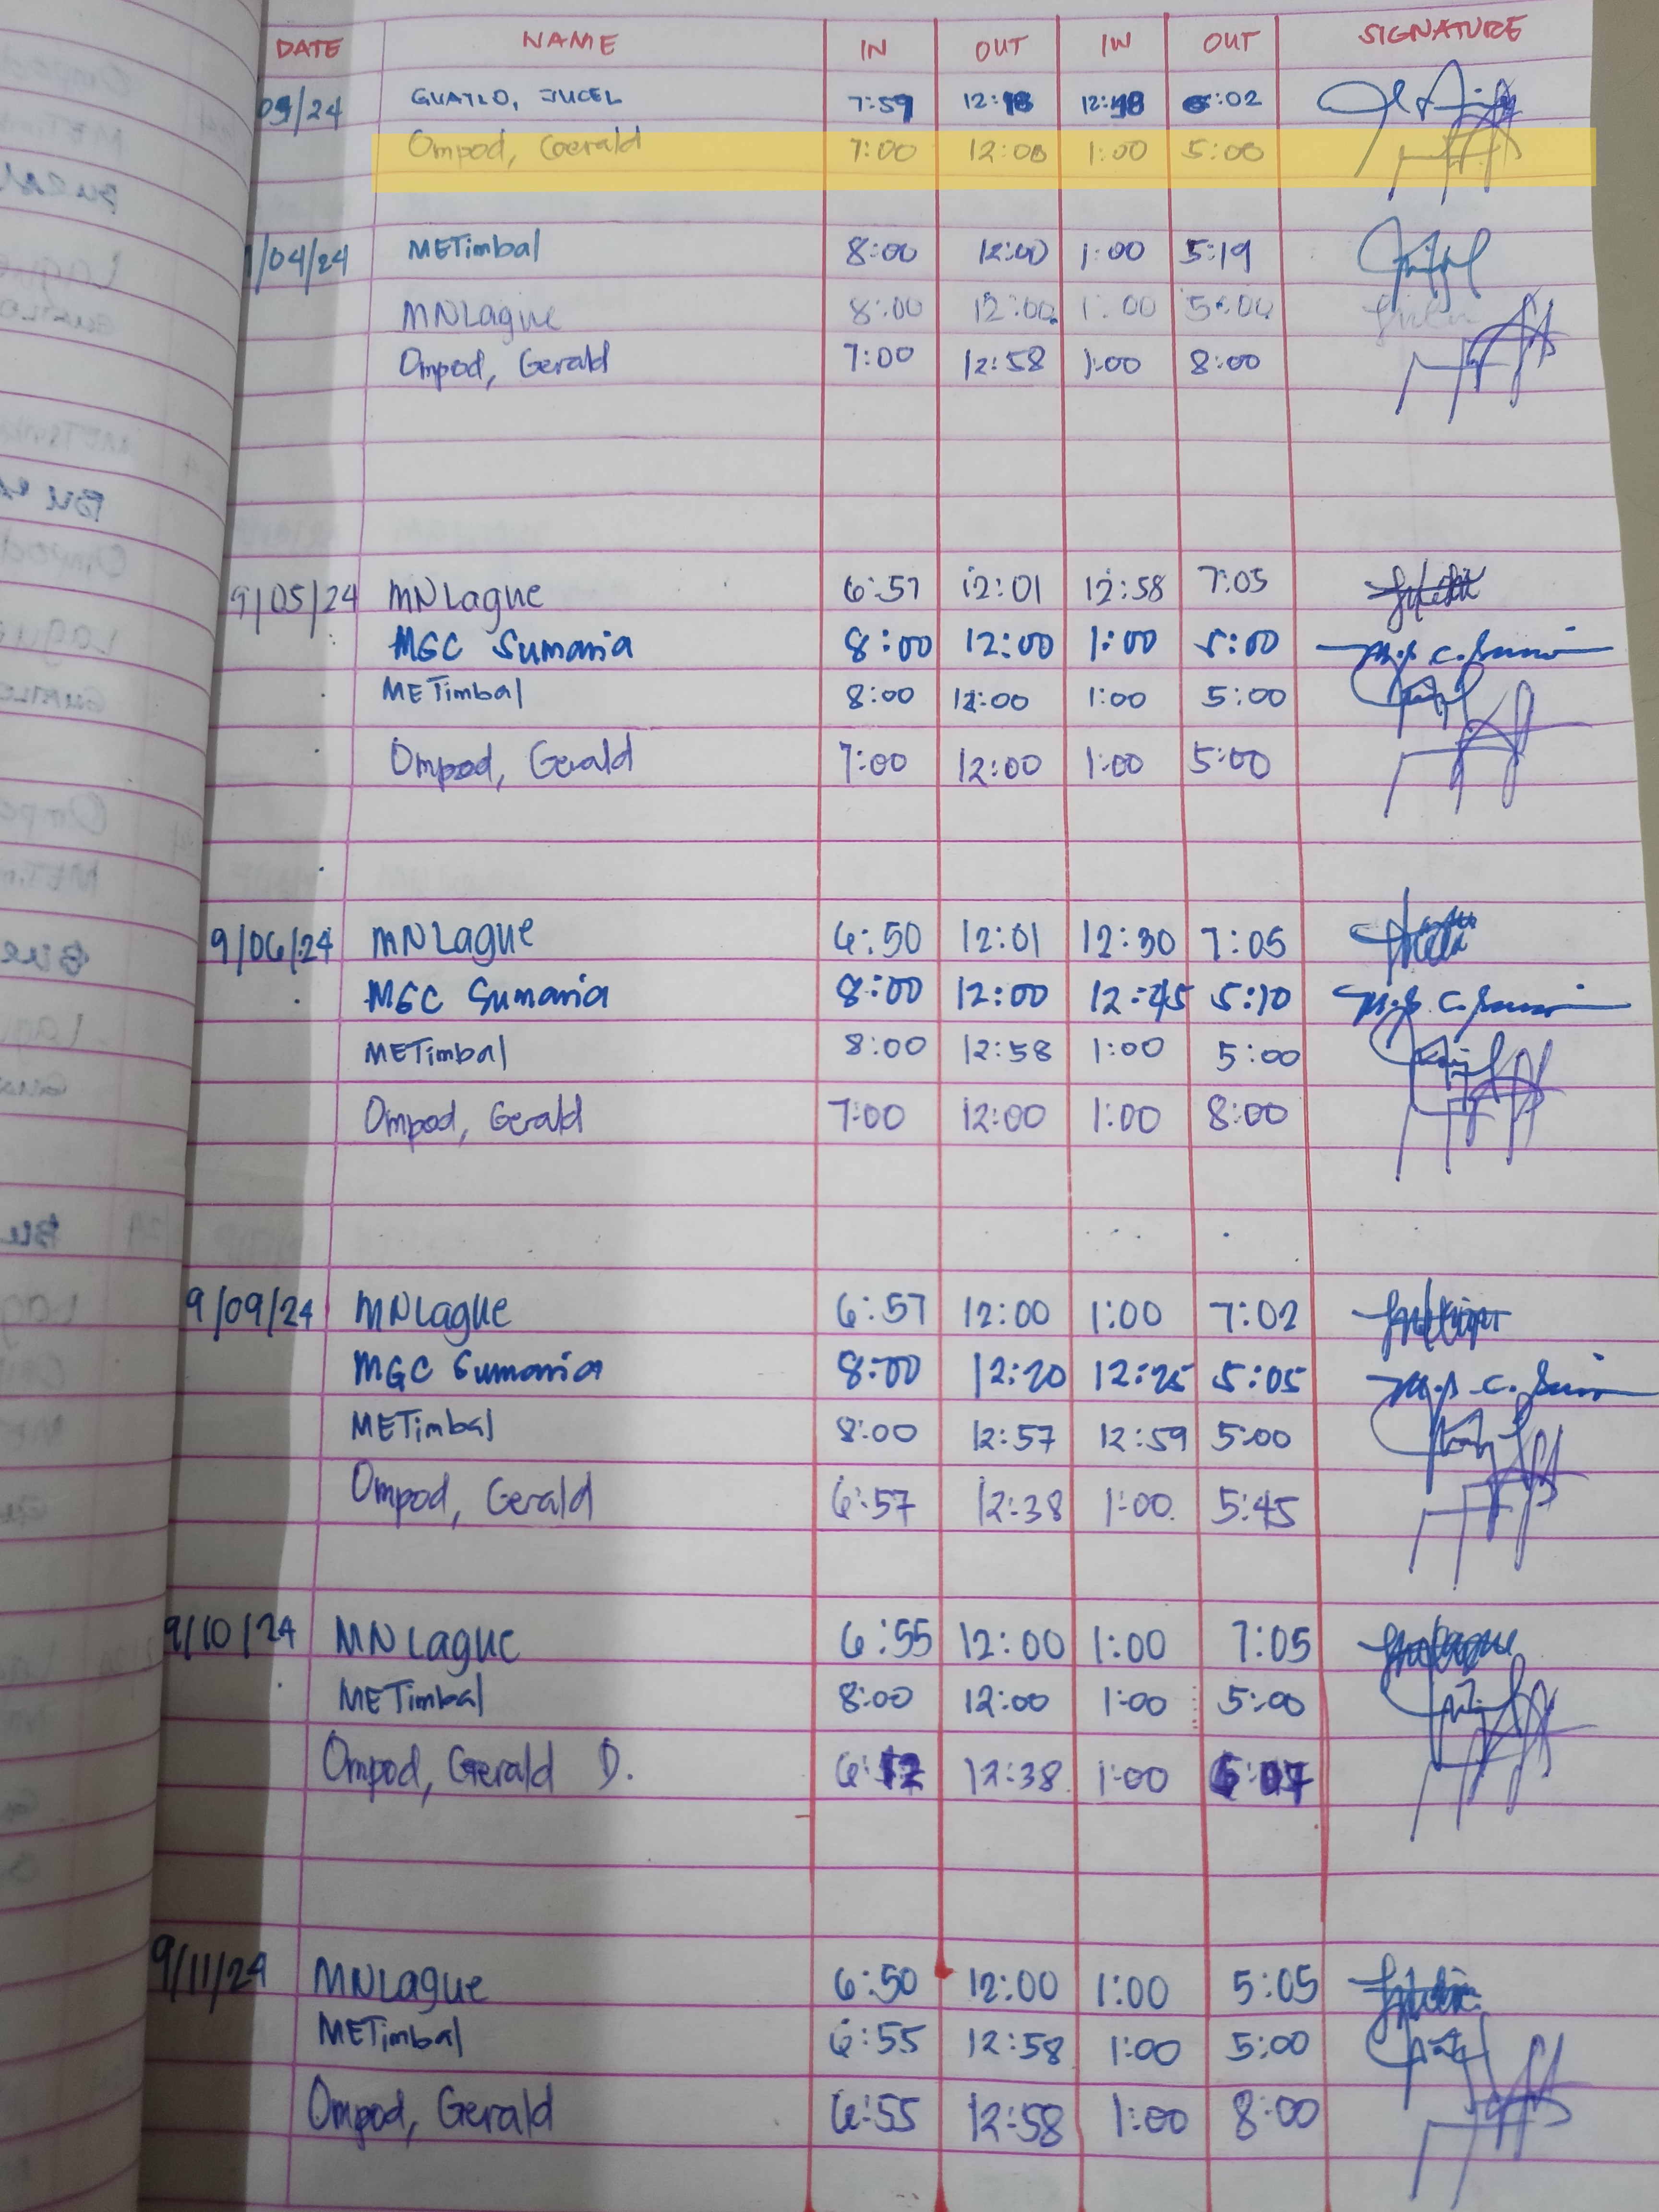 DATE NAME IN OUT IN OUT SIGNATURE
09/24 GUATLO, JUCEL 7:59 12:18 12:48 :02
Ompod, Gerald 7:00 12:00 1:00 5:00
/04/24 METimbal 8:00 12:00 1:00 5:19
MNLague 8:00 12:00 1:00 5:00
Ompod, Gerald 7:00 12:58 1:00 8:00
9/05/24 MNLague 6:57 12:01 12:58 7:05
MGC Sumania 8:00 12:00 1:00 5:00
METimbal 8:00 12:00 1:00 5:00
Ompod, Gerald 7:00 12:00 1:00 5:00
9/06/24 MNLague 6:50 12:01 12:30 7:05
MGC Sumania 8:00 12:00 12:45 5:10
METimbal 8:00 12:58 1:00 5:00
Ompod, Gerald 7:00 12:00 1:00 8:00
9/09/24 MNLague 6:57 12:00 1:00 7:02
MGC Sumania 8:00 12:20 12:25 5:05
METimbal 8:00 12:57 12:59 5:00
Ompod, Gerald 6:57 12:38 1:00 5:45
9/10/24 MNLague 6:55 12:00 1:00 7:05
METimbal 8:00 12:00 1:00 5:00
Ompod, Gerald D. 12:38 1:00
9/11/24 MNLague 6:50 12:00 1:00 5:05
METimbal 6:55 12:58 1:00 5:00
Ompod, Gerald 6:55 12:58 1:00 8:00